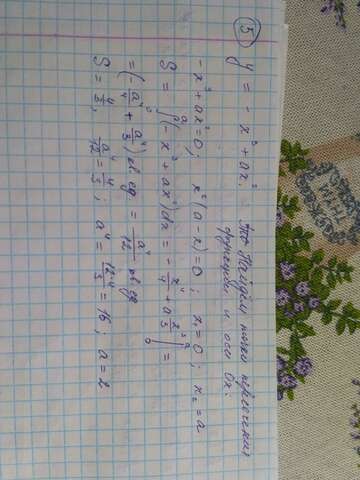 ⑤ y = - x³ + ax². Найдём точки пересечения
функции и оси Ox.
-x³ + ax² = 0; x²(a - x) = 0; x₁ = 0; x₂ = a
S = ∫₀ᵃ(-x³ + ax²)dx = -x⁴/4 + a x³/3 |₀ᵃ =
= (-a⁴/4 + a⁴/3) кв.ед = a⁴/12 кв.ед
S = 4/3; a⁴/12 = 4/3; a⁴ = 12·4/3 = 16; a = 2